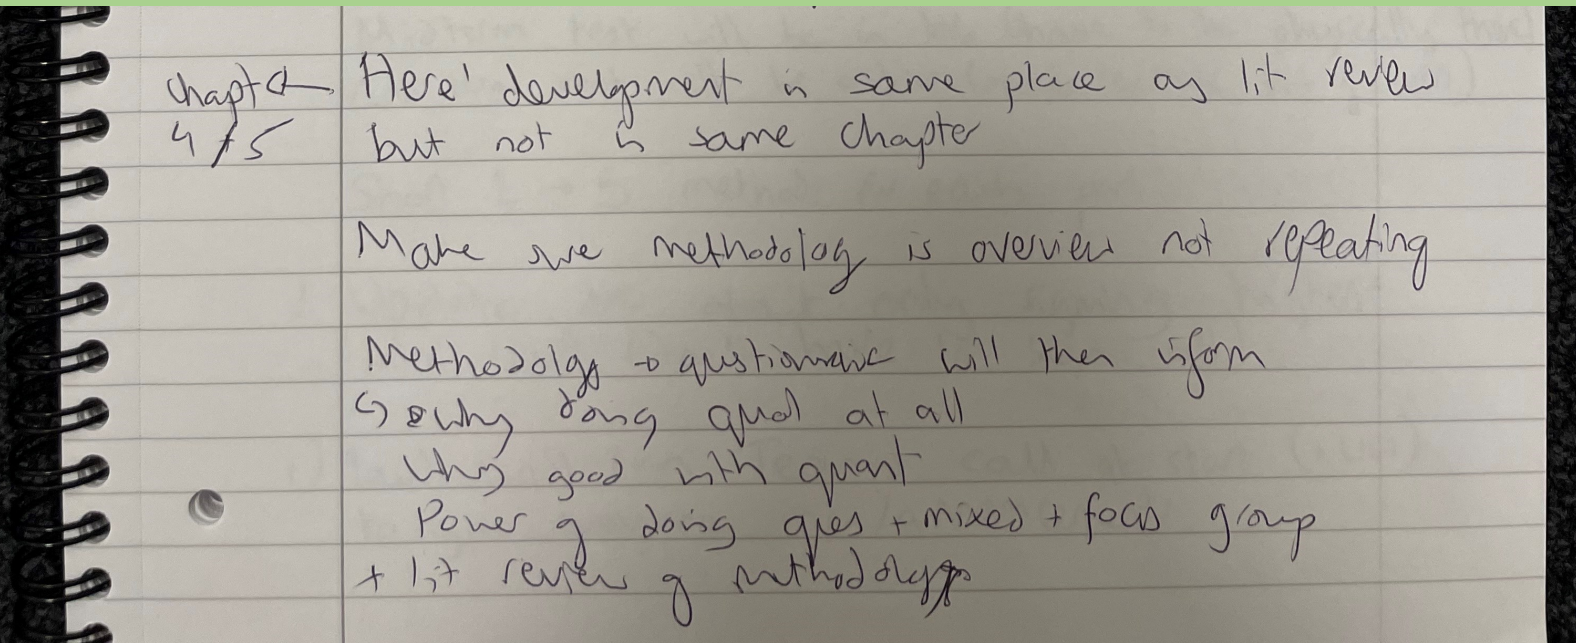 Chapter
4/5
Here' development is same place as lit review
but not in same chapter
Make sure methodology is overview not repeating
Methodolgy → questionnaire will then inform
↳ why doing qual at all
why good with quant
Power of doing ques + mixed + focus group
+ lit review of methodology